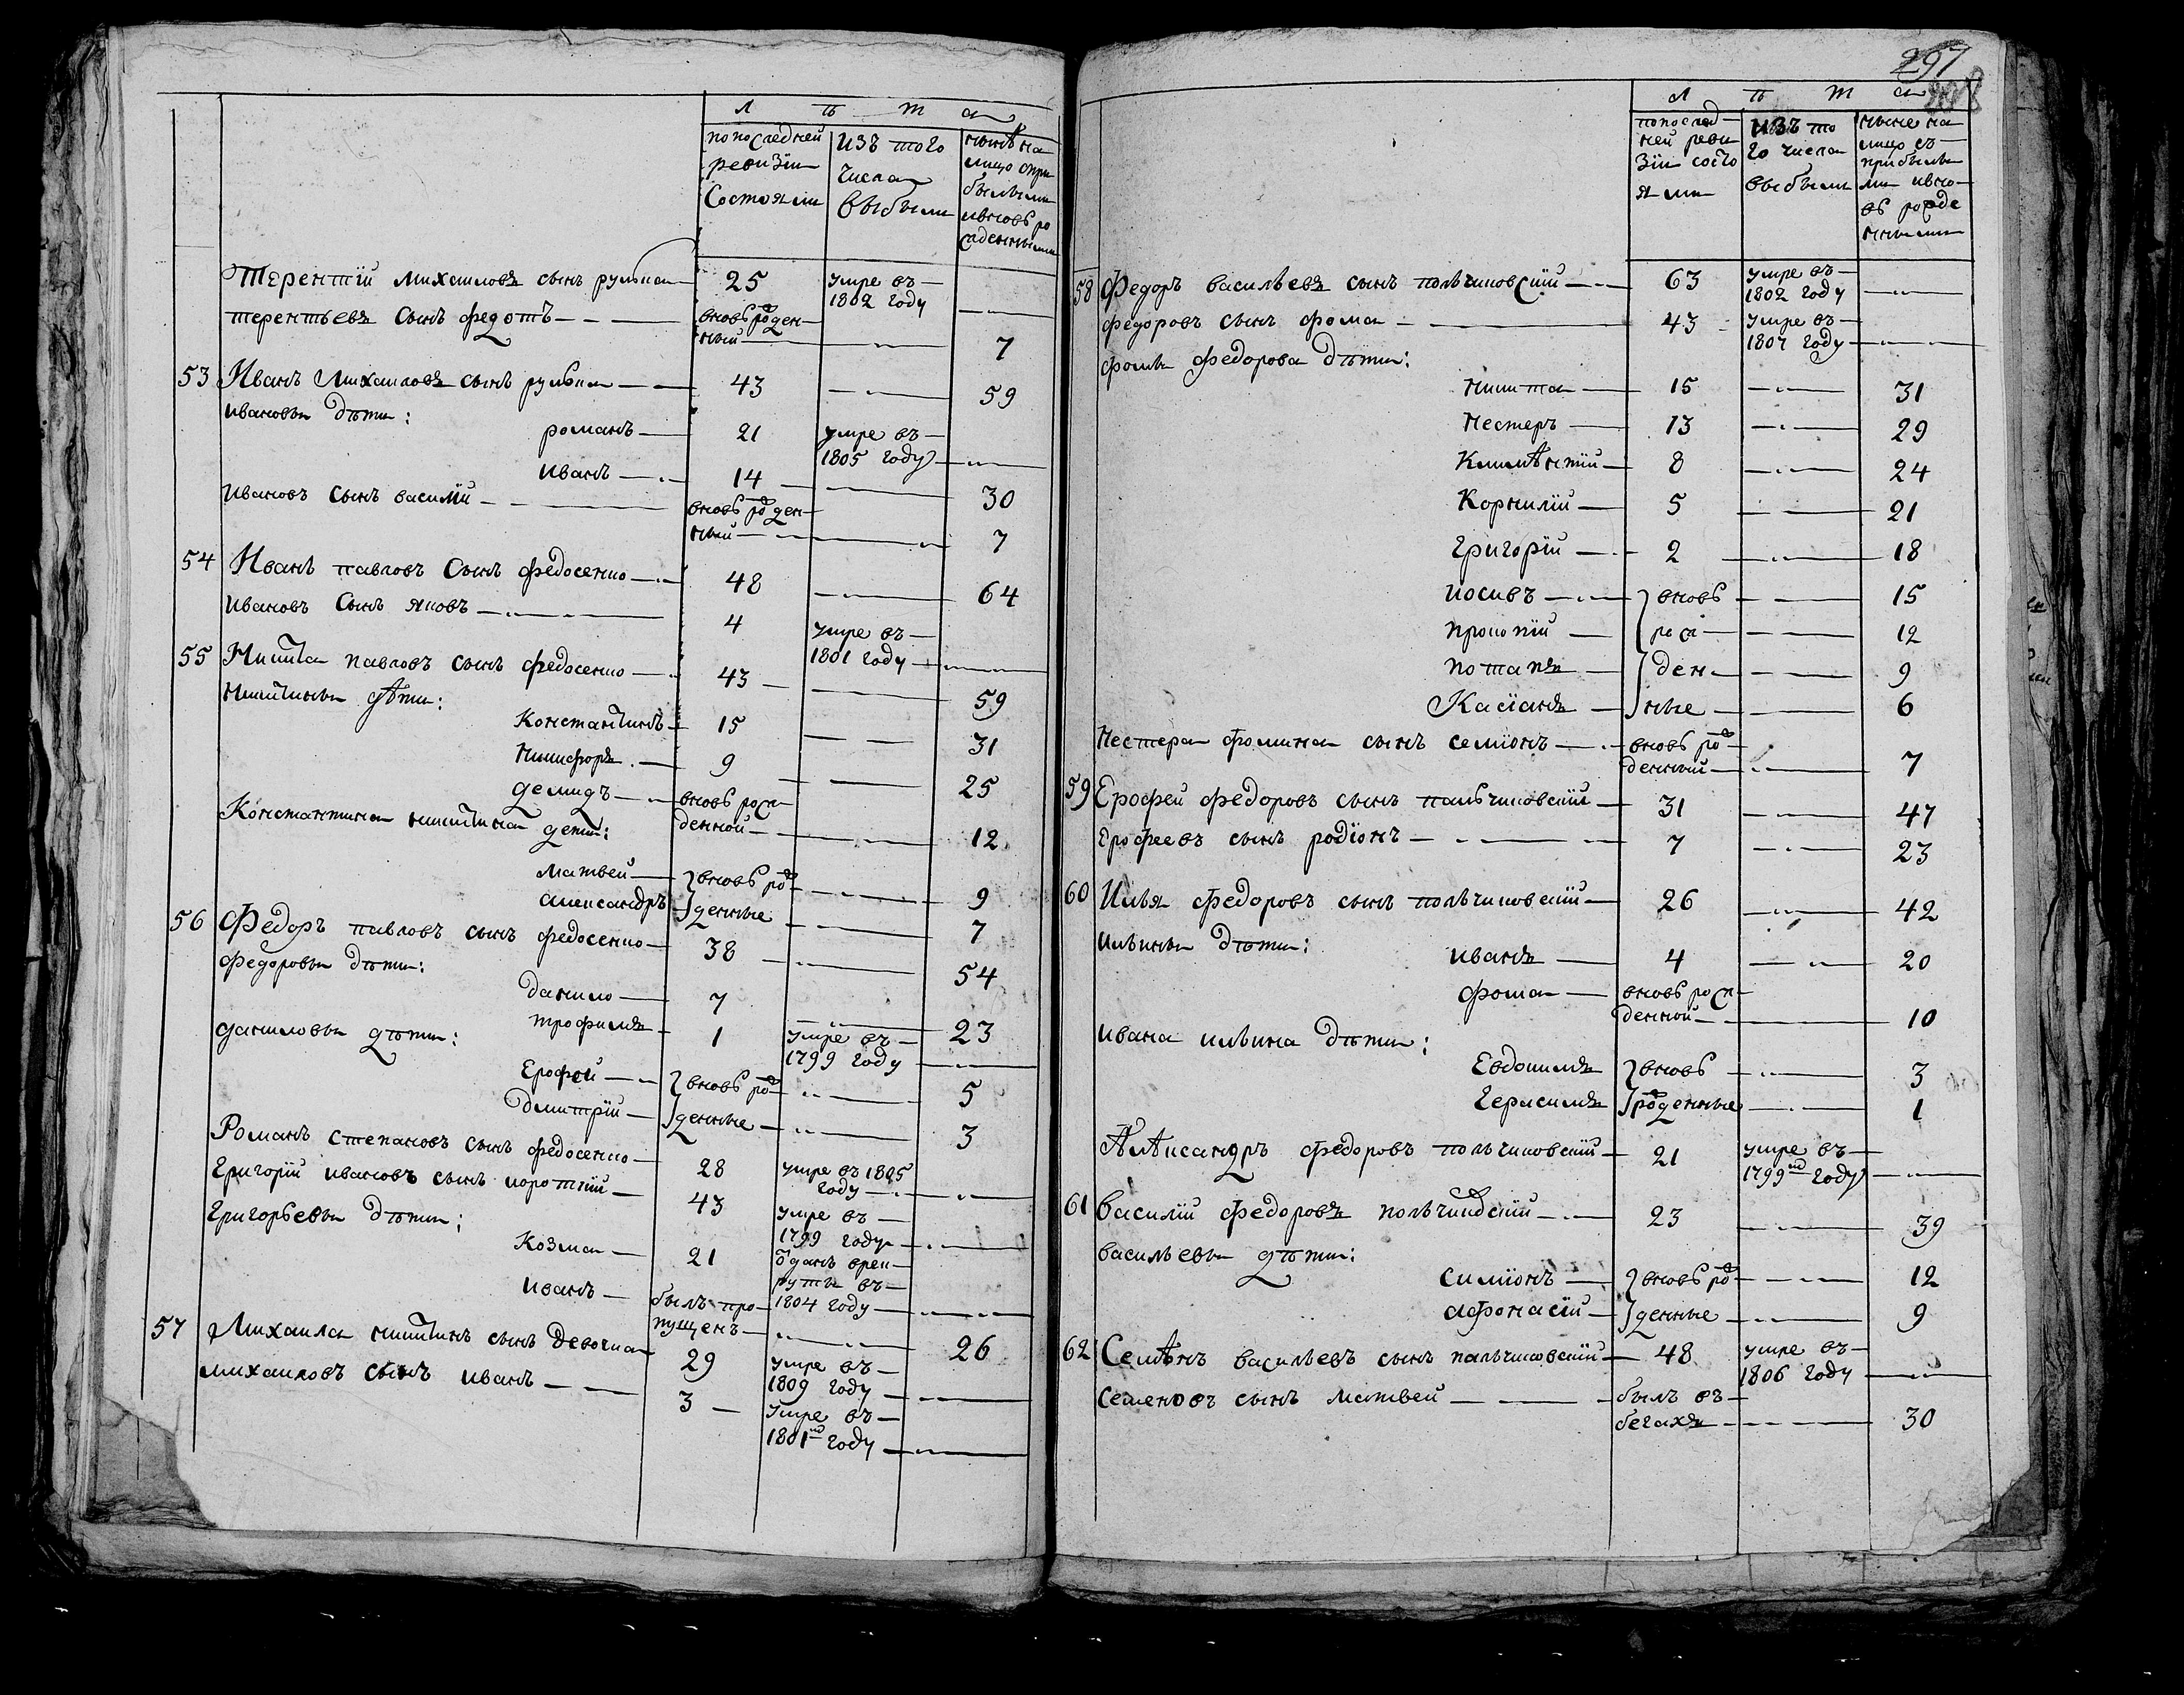 Л ѣ т а
по последней ревизіи состояли
изъ того числа выбыли
нынѣ на лицо с прибылыми и вновь рожденными
Терентій михаиловъ сынъ рулька 25 умре въ 1802 году
терентьевъ сынъ федотъ вновь рожденный 7
53 Иванъ михаиловъ сынъ рулька 43 59
ивановы дѣти:
романъ 21 умре въ 1805 году
иванъ 14 30
ивановъ сынъ василій вновь рожденный 7
54 Иванъ павловъ сынъ федосенко 48 64
ивановъ сынъ яковъ 4 умре въ 1801 году
55 Никита павловъ сынъ федосенко 43 59
никитины дѣти:
Константинъ 15 31
Никифоръ 9 25
демидъ вновь рожденной 12
Константина никитина дети:
матвей вновь рожденные 9
александръ 7
56 Федоръ павловъ сынъ федосенко 38 54
федоровы дѣти:
данило 7 23
трофимъ 1 умре въ 1799 году
даниловы дѣти:
Ерофей вновь рожденные 5
дмитрій 3
Романъ степановъ сынъ федосенко 28 умре въ 1805 году
Григорій ивановъ сынъ короткій 43 умре въ 1799 году
Григорьевы дѣти:
Козма 21 отданъ врекруты въ 1804 году
иванъ былъ пропущенъ 26
57 Михаила никитинъ сынъ девочка 29 умре въ 1809 году
михаиловъ сынъ иванъ 3 умре въ 1801мъ году
297
Л ѣ т а
по последней ревизіи состояли
изъ того числа выбыли
ныне на лицо съ прибылыми и вновь рожденными
58 Федоръ васильевъ сынъ пальчиковскій 63 умре въ 1802 году
федоровъ сынъ фома 43 умре въ 1807 году
фомы федорова дѣти:
Никита 15 31
Нестеръ 13 29
Климѣнтій 8 24
Корнилій 5 21
Григорій 2 18
иосивъ вновь 15
прокопій рож 12
потапъ ден 9
Касіанъ ные 6
Нестера фомина сынъ семіонъ вновь рожденный 7
59 Ерофей федоровъ сынъ пальчиковскій 31 47
Ерофеевъ сынъ родіонъ 7 23
60 Илья федоровъ сынъ пальчиковскій 26 42
ильины дѣти:
иванъ 4 20
фома вновь рожденной 10
ивана ильина дѣти:
Евдокимъ вновь 3
Герасимъ рожденные 1
Алѣксандръ федоровъ пальчиковскій 21 умре въ 1799мъ году
61 Василій федоровъ пальчиковскій 23 39
васильевы дѣти:
симіонъ вновь рож 12
афонасій денные 9
62 Семѣнъ васильевъ сынъ пальчиковскій 48 умре въ 1806 году
семеновъ сынъ матвей былъ въ бегахъ 30